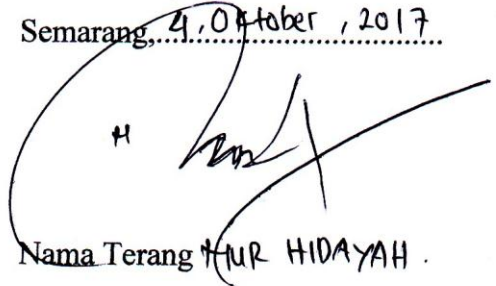 Semarang, 4, Oktober , 2017
Nama Terang NUR HIDAYAH .